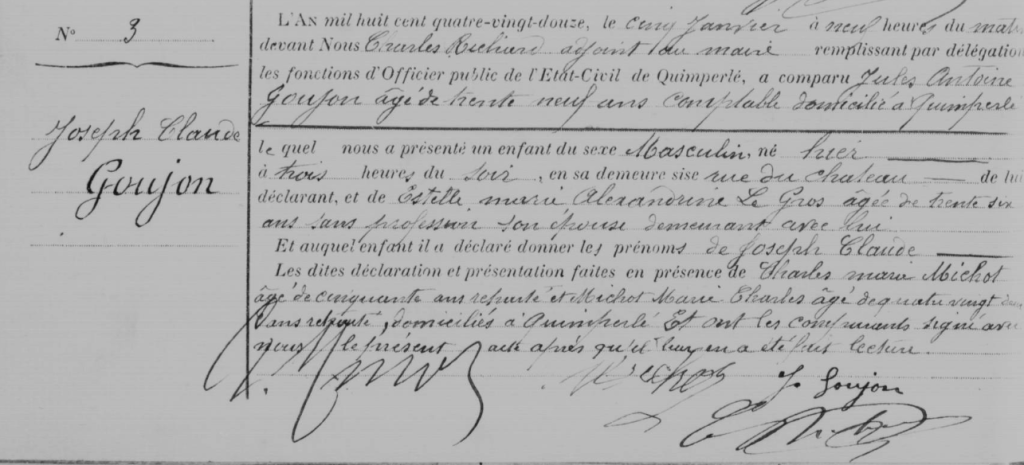 N° 3
Joseph Claude
Goujon
L'An mil huit cent quatre-vingt-douze, le cinq Janvier à neuf heures du matin
devant Nous Charles Richard adjoint au maire remplissant par délégation
les fonctions d'Officier public de l'Etat-Civil de Quimperlé, a comparu Jules Antoine
Goujon âgé de trente neuf ans comptable domicilié à Quimperlé
le quel nous a présenté un enfant du sexe Masculin, né hier
à trois heures du soir, en sa demeure sise rue du chateau de lui
déclarant, et de Estelle marie Alexandrine Le Gros âgée de trente six
ans sans profession son épouse demeurant avec lui
Et auquel enfant il a déclaré donner les prénoms de Joseph Claude
Les dites déclaration et présentation faites en présence de Charles marie Michot
âgé de cinquante ans retraité et Michot Marie Charles âgé de quatre vingt
ans retraité, domiciliés à Quimperlé Et ont les comparants signé avec
nous le présent acte après qu'il leur en a été fait lecture.
J. Goujon